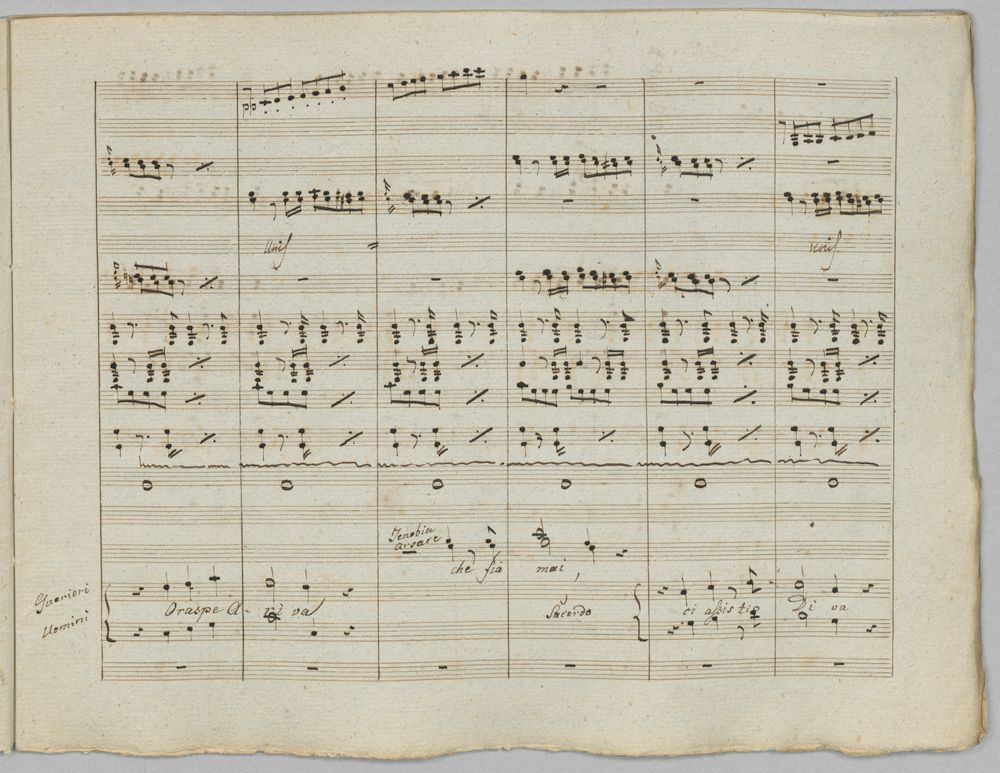 pp
unis
unis
Zenobia
Arsace
che fia mai,
Guerieri
Uomini
Oraspe a-rriva
Sacerdo
ci assistie Diva